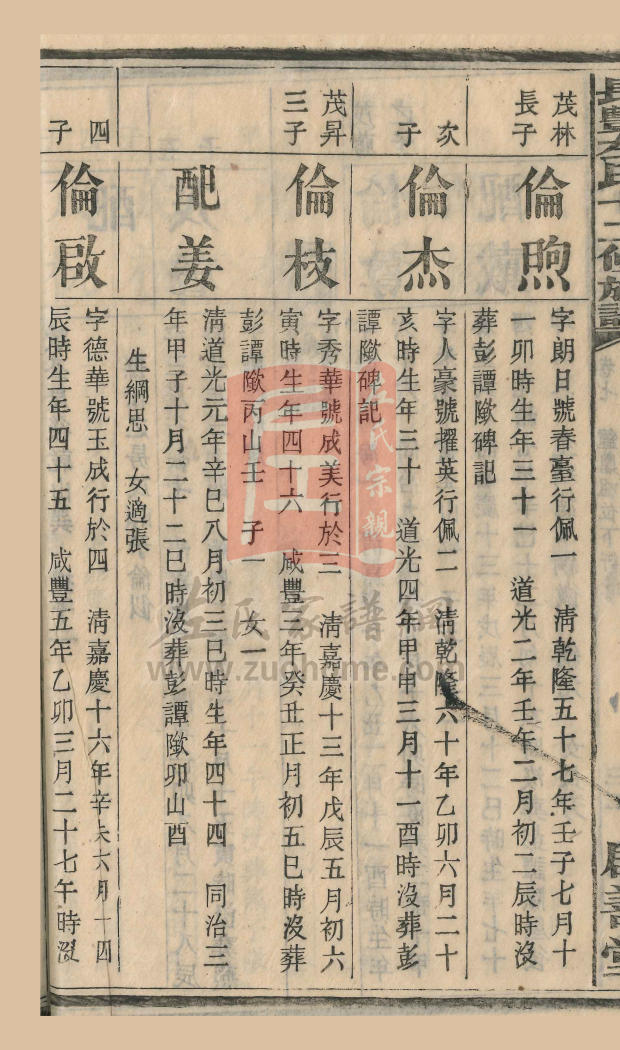 茂林
長子
倫煦
字朗日號春臺行佩一　清乾隆五十七年壬子七月十
一卯時生年三十一　道光二年壬午二月初二辰時沒
葬彭譚歟碑記
次
子
倫杰
字人豪號擢英行佩二　清乾隆六十年乙卯六月二十
亥時生年三十　道光四年甲申三月十一酉時沒葬彭
譚歟碑記
茂昇
三子
倫枝
字秀華號成美行於三　清嘉慶十三年戊辰五月初六
寅時生年四十六　咸豐三年癸丑正月初五巳時沒葬
彭譚歟丙山壬　子一　女一
配姜
清道光元年辛巳八月初三巳時生年四十四　同治三
年甲子十月二十二巳時沒葬彭譚歟卯山酉
生綱思　女適張
四
子
倫啟
字德華號玉成行於四　清嘉慶十六年辛未六月十四
辰時生年四十五　咸豐五年乙卯三月二十七午時沒
左氏宗親
左氏家譜網
www.zuohome.com